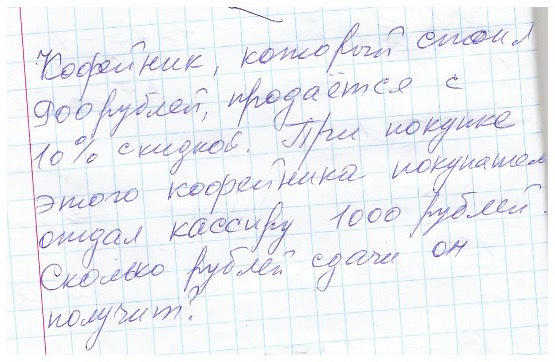 Кофейник, который стоил
900 рублей, продаётся с
10% скидкой. При покупке
этого кофейника покупатель
отдал кассиру 1000 рублей.
Сколько рублей сдачи он
получит?